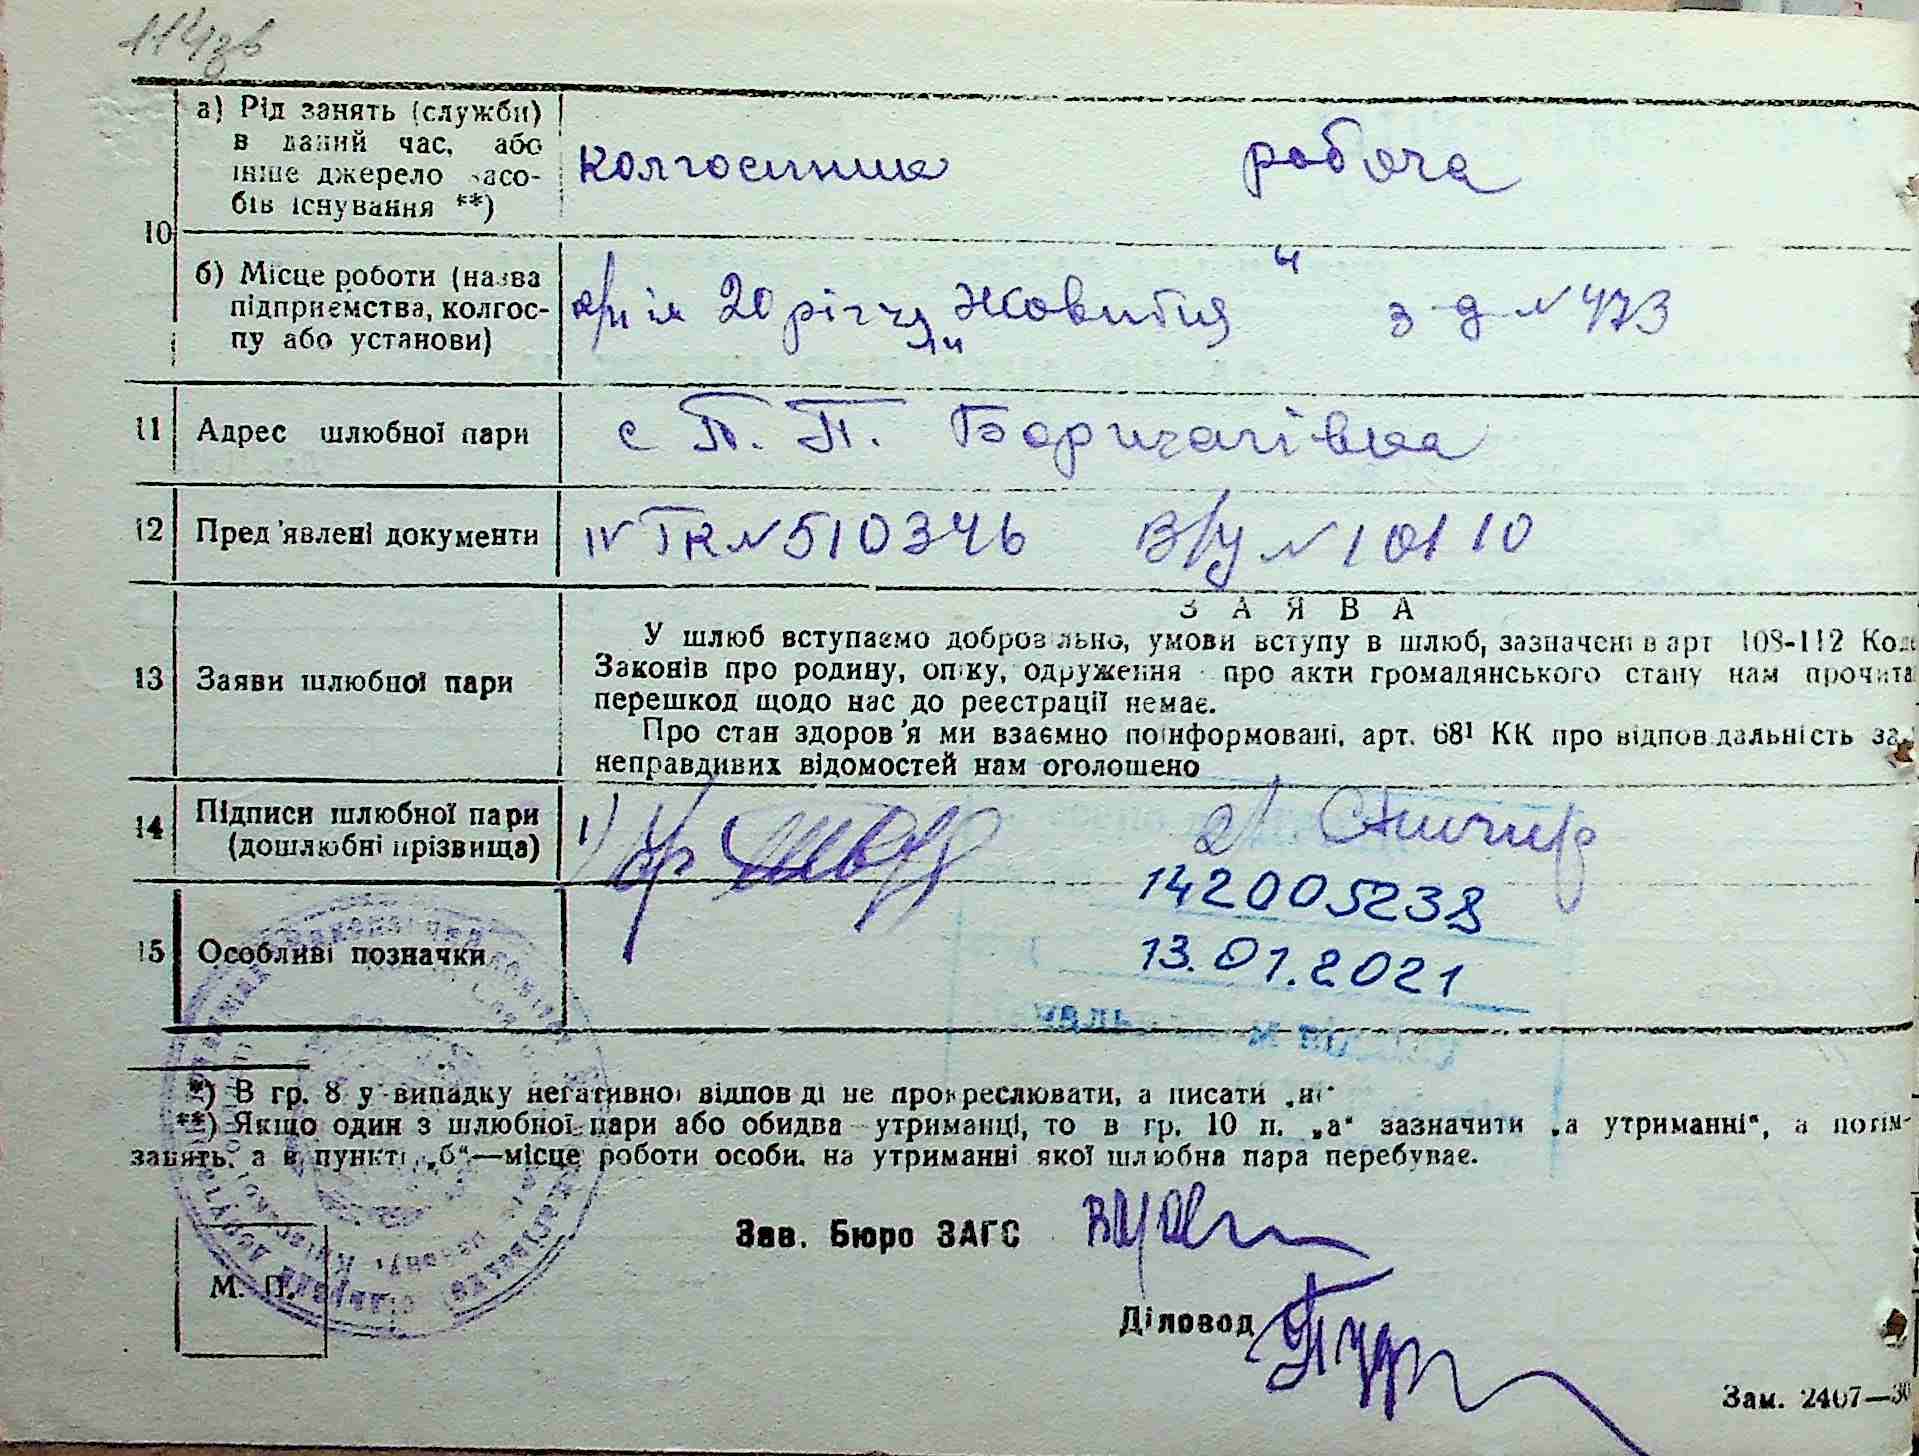 114зв
а) Рід занять (служби)
в даний час, або
інше джерело засо-
бів існування **)
колгоспник робоча
10
б) Місце роботи (назва
підприємства, колгос-
пу або установи)
ім 20 річчя „Жовтня“ з-д № 473
11 Адрес шлюбної пари с П. П. Борщагівка
12 Пред'явлені документи IV ТК № 510346 В/у № 101110
З А Я В А
13 Заяви шлюбної пари
У шлюб вступаємо добровільно, умови вступу в шлюб, зазначені в арт 108-112 Код
Законів про родину, опіку, одруження про акти громадянського стану нам прочита
перешкод щодо нас до реєстрації немає.
Про стан здоров'я ми взаємно поінформовані, арт. 68¹ КК про відповідальність за
неправдивих відомостей нам оголошено
14 Підписи шлюбної пари
(дошлюбні прізвища)
1) 2)
142005238
15 Особливі позначки
13.01.2021
*) В гр. 8 у випадку негативної відповіді не прокреслювати, а писати „ні“
**) Якщо один з шлюбної пари або обидва утриманці, то в гр. 10 п. „а“ зазначити „а утриманні“, а потім
занять, а в пункті „б“—місце роботи особи, на утриманні якої шлюбна пара перебуває.
Зав. Бюро ЗАГС
М. П.
Діловод
Зам. 2407—30